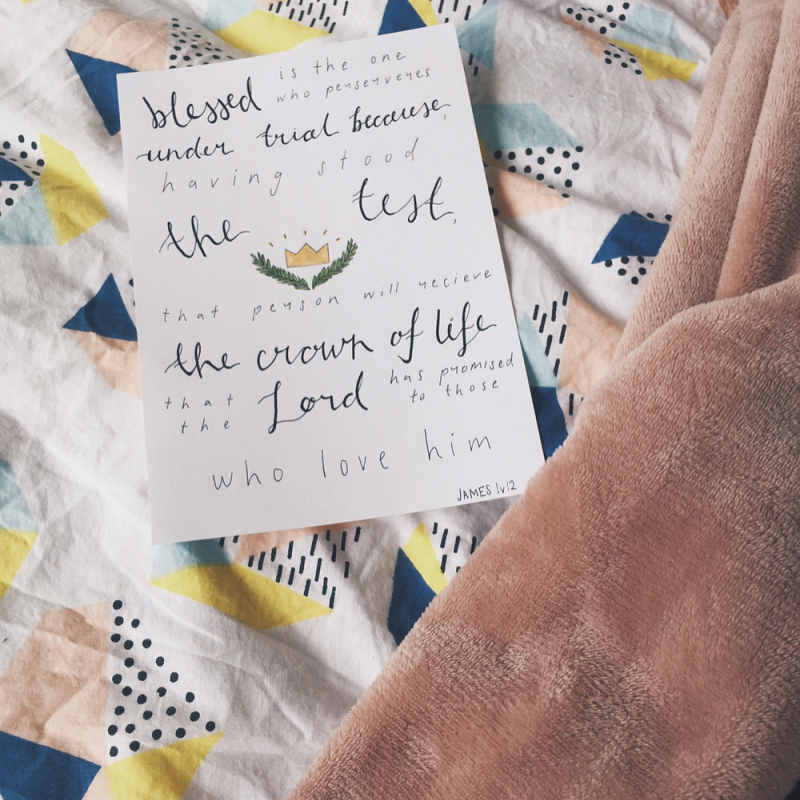 blessed is the one
who perserveres
under trial because,
having stood
the test,
that person will recieve
the crown of life
that the Lord has promised
to those
who love him
JAMES 1v12